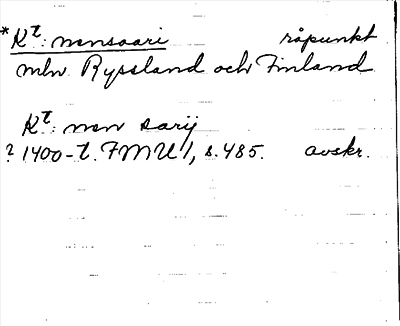 *Kt: mensaari råpunkt
mln Ryssland och Finland
Kt: men sarij
? 1400-t. FMU 1, s. 485. avskr.